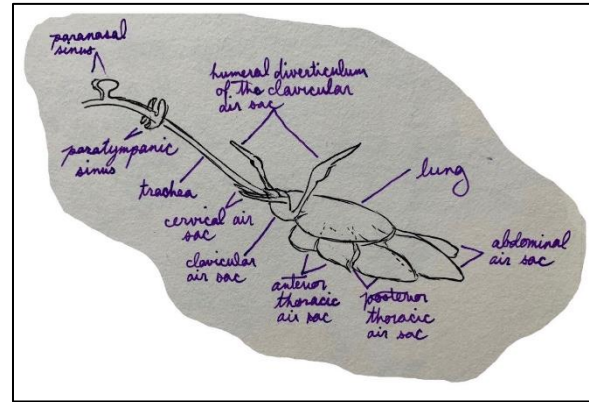 paranasal
sinus
humeral diverticulum
of the clavicular
air sac
paratympanic
sinus
trachea
lung
cervical air
sac
clavicular
air sac
anterior
thoracic
air sac
posterior
thoracic
air sac
abdominal
air sac